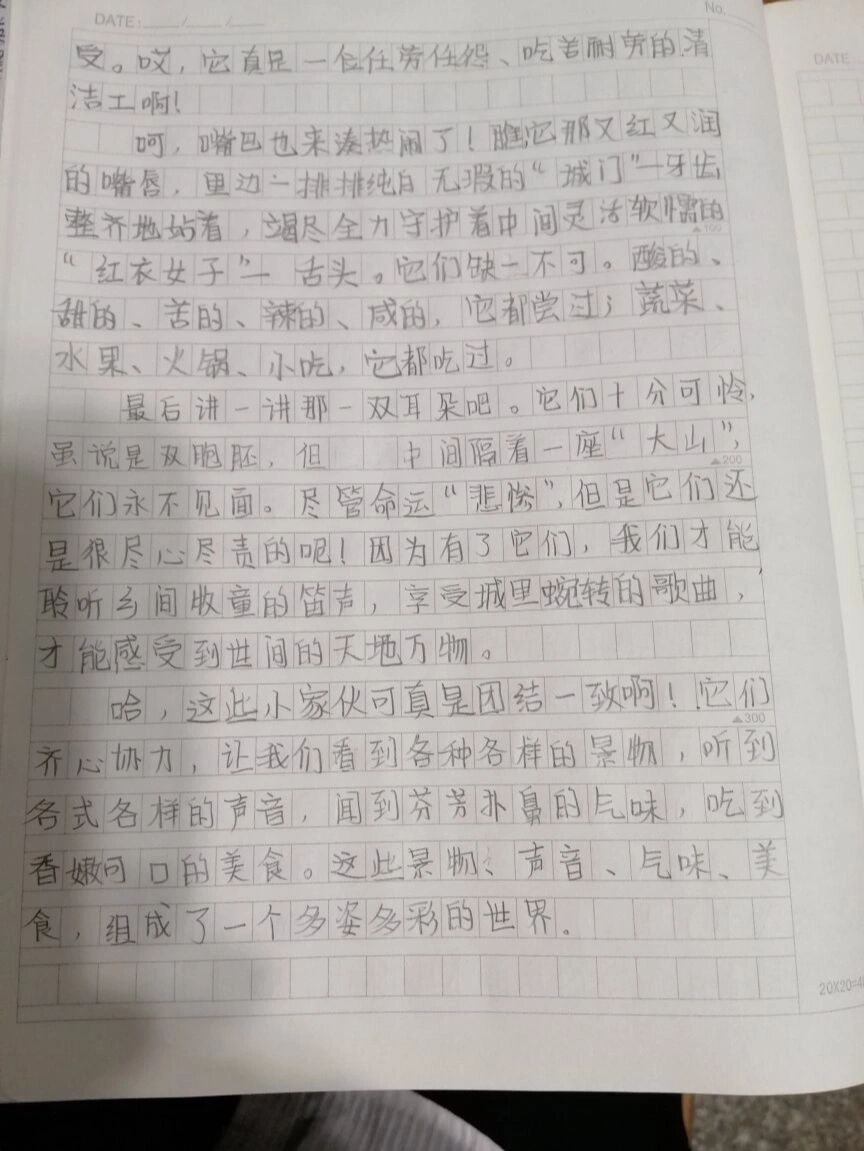 DATE: No.
受。哎，它真是一位任劳任怨、吃苦耐劳的清
洁工啊！
呵，嘴巴也来凑热闹了！瞧它那又红又润
的嘴唇，里边一排排纯白无瑕的“城门”—牙齿
整齐地站着，竭尽全力守护着中间灵活软懦的
▲100
“红衣女子”—舌头。它们缺一不可。酸的、
甜的、苦的、辣的、咸的，它都尝过；蔬菜、
水果、火锅、小吃，它都吃过。
最后讲一讲那一双耳朵吧。它们十分可怜，
虽说是双胞胚，但 中间隔着一座“大山”，
▲200
它们永不见面。尽管命运“悲惨”，但是它们还
是狠尽心尽责的呢！因为有了它们，我们才能
聆听乡间牧童的笛声，享受城里蜿转的歌曲，
才能感受到世间的天地万物。
哈，这些小家伙可真是团结一致啊！它们
▲300
齐心协力，让我们看到各种各样的景物，听到
各式各样的声音，闻到芬芳扑鼻的气味，吃到
香嫩可口的美食。这些景物、声音、气味、美
食，组成了一个多姿多彩的世界。
DATE